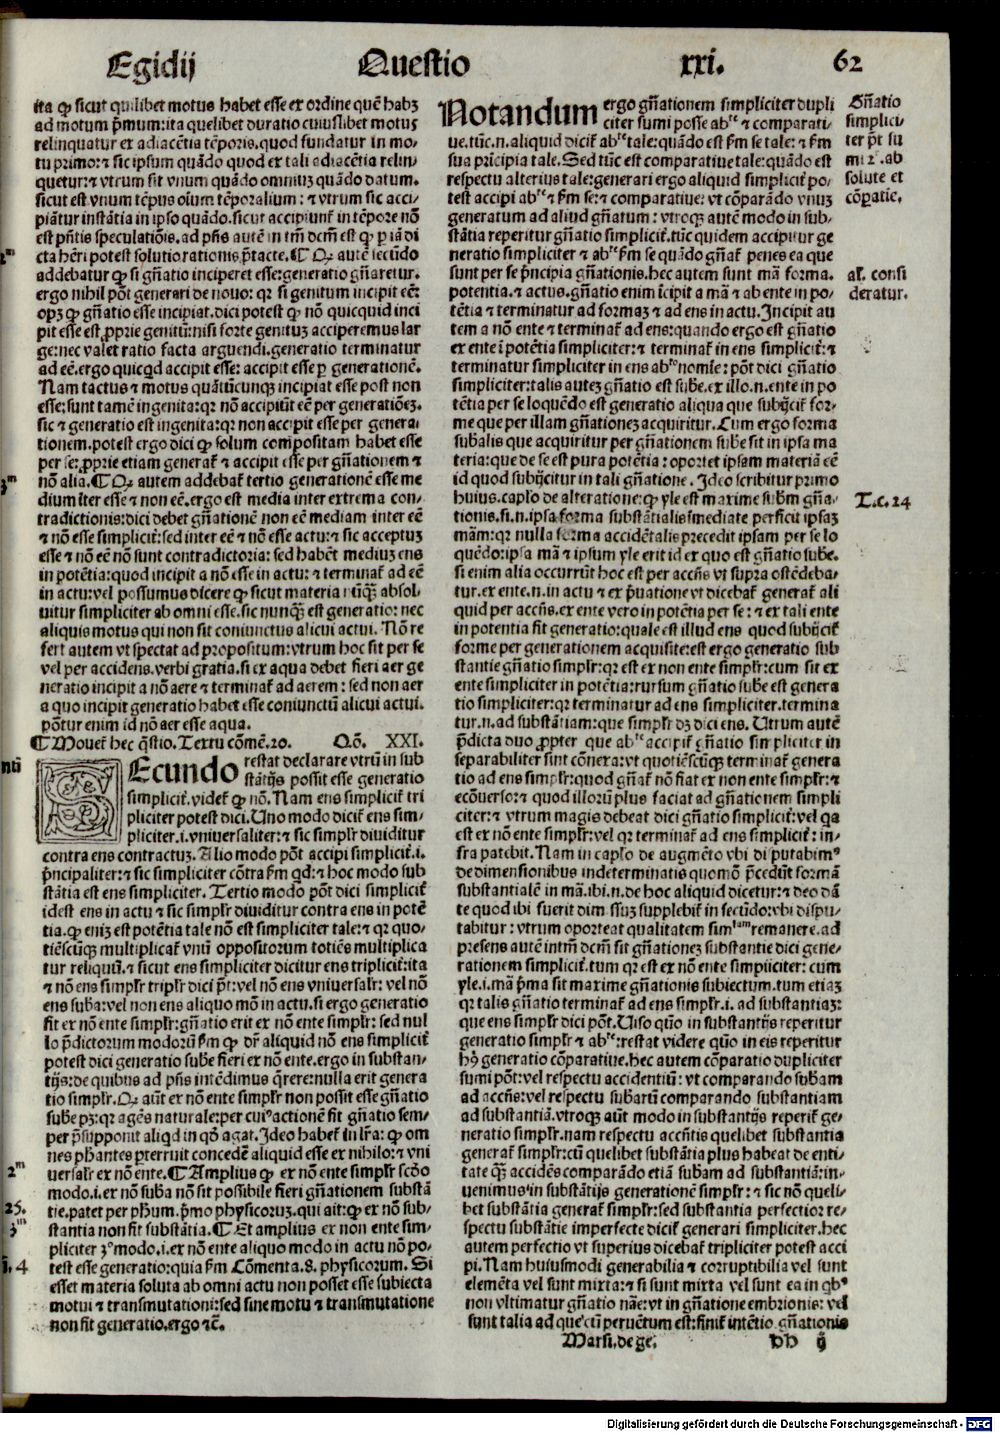 Egidij Questio xxi. 62
ita ꝙ sicut quilibet motus habet esse ex ordine quē habꝫ
ad motum p̄mum:ita quelibet duratio cuiuslibet motus
relinquatur ex adiacētia tēporis.quod fundatur in mo/
tu primo:⁊ sic ipsum quādo quod ex tali adiacētia relin/
quetur:⁊ vtrum sit vnum quādo omniuꝫ quādo datum.
sicut est vnum tēpus oīum tēporalium:⁊ vtrum sic acci/
piātur instātia in ipso quādo.sicut accipiunt̄ in tēpore nō
est pn̄tis speculatiōis.ad pn̄s autē in tm̄ dcm̄ est ꝙ p iā di
cta heri potest solutio rationis p̄tacte.¶ Qꝫ autē secūdo
addebatur ꝙ si gn̄atio inciperet esse:generatio gn̄aretur.
ergo nihil pōt generari de nouo: qꝛ si genitum incipit eē:
opꝫ ꝙ gn̄atio esse incipiat.dici potest ꝙ nō quicquid inci
pit esse est ꝓprie genitū:nisi forte genituꝫ acciperemus lar
ge:nec valet ratio facta arguendi.generatio terminatur
ad eē.ergo quicqd accipit esse: accipit esse ꝑ generationē.
Nam tactus ⁊ motus quātūcunqꝫ incipiat esse post non
esse:sunt tamē ingenita:qꝛ nō accipiūt eē per generatiōeꝫ.
sic ⁊ generatio est ingenita:qꝛ non accipit esse per genera/
tionem.potest ergo dici ꝙ solum compositam habet esse
per se:ꝓprie etiam generat̄ ⁊ accipit esse per gn̄ationem ⁊
nō alia.¶ Qꝫ autem addebat̄ tertio generationē esse me
dium iter esse ⁊ non eē.ergo est media inter extrema con/
tradictionis:dici debet gn̄ationē non eē mediam inter eē
⁊ nō esse simplicit̄:sed inter eē ⁊ nō esse actu:⁊ sic acceptus
esse ⁊ nō eē nō sunt contradictoria: sed habēt mediuꝫ ens
in potētia:quod incipit a nō esse in actu: ⁊ terminat̄ ad eē
in actu:vel possumus dicere ꝙ sicut materia nūqꝫ absol/
uitur simpliciter ab omni esse.sic nunqꝫ est generatio: nec
aliquis motus qui non sit coniunctus alicui actui. Nō re
fert autem vt spectat ad propositum:vtrum hoc sit per se
vel per accidens.verbi gratia.si ex aqua debet fieri aer ge
neratio incipit a nō aere ⁊ terminat̄ ad aerem: sed non aer
a quo incipit generatio habet esse coniunctū alicui actui.
pōtur enim id nō aer esse aqua.
¶ Mouet̄ hec q̄stio.Textu cōmē.20. Qō. XXI.
SEcundo restat declarare vtrū in sub
stātijs possit esse generatio
simplicit̄.videt̄ ꝙ nō.Nam ens simplicit̄ tri
pliciter potest dici.Uno modo dicit̄ ens sim/
pliciter.i.vniuersaliter:⁊ sic simplr̄ diuiditur
contra ens contractuꝫ. Alio modo pōt accipi simplicit̄.i.
p̄ncipaliter:⁊ sic simpliciter cōtra ẜm qd:⁊ hoc modo sub
stātia est ens simpliciter. Tertio modo pōt dici simplicit̄
idest ens in actu ⁊ sic simplr̄ diuiditur contra ens in potē
tia.ꝙ enim est potētia tale nō est simpliciter tale:⁊ qꝛ quo/
tiēscūqꝫ multiplicat̄ vnū oppositorum totiēs multiplica
tur reliquū.⁊ sicut ens simpliciter dicitur ens triplicit̄:ita
⁊ nō ens simplr̄ triplr̄ dici p̄t:vel nō ens vniuersalr̄: vel nō
ens suba:vel non ens aliquo mō in actu.si ergo generatio
fit ex nō ente simplr̄:gn̄atio erit ex nō ente simplr̄: sed nul
lo p̄dictorum modorū ẜm ꝙ dr̄ aliquid nō ens simplicit̄
potest dici generatio sube fieri ex nō ente.ergo in substan/
tijs:de quibus ad pn̄s intēdimus q̄rere:nulla erit genera
tio simplr̄.Qꝫ aūt ex nō ente simplr̄ non possit esse gn̄atio
sube pꝫ:qꝛ agēs naturale:per cuiꝰ actionē fit gn̄atio sem/
per p̄supponit aliqd in qō agat.Ideo habet̄ in lr̄a: ꝙ om
nes ph̄antes pterruit concedē aliquid esse ex nihilo:⁊ vni
uersalr̄ ex nō ente.¶ Amplius ꝙ ex nō ente simplr̄ scd̄o
modo.i.ex nō suba nō sit possibile fieri gn̄ationem substā
tie.patet per ph̄um.p̄mo physicorum.qui ait:ꝙ ex nō sub/
stantia non fit substātia.¶ Et amplius ex non ente sim/
pliciter 3ᵒ modo.i.ex nō ente aliquo modo in actu nō po/
test esse generatio:quia ẜm Cōmenta.8. physicorum. Si
esset materia soluta ab omni actu non posset esse subiecta
motui ⁊ transmutationi:sed sine motu ⁊ transmutatione
non fit generatio.ergo ⁊c̄.
2ᵐ
3ᵐ
ntū
2ᵐ
25.
3ᵐ
4
Notandum ergo gn̄ationem simpliciter dupli
citer sumi posse abᵗᵉ ⁊ comparati/
ue.tūc.n.aliquid dicit̄ abᵗᵉ tale:quādo est ẜm se tale: ⁊ ẜm
sua prīcipia tale.Sed tūc est comparatiue tale:quādo est
respectu alterius tale:generari ergo aliquid simplicit̄ po/
test accipi abᵗᵉ ⁊ ẜm se:⁊ comparatiue: vt cōparādo vnuꝫ
generatum ad aliud gn̄atum: vtroqꝫ autē modo in sub/
stātia reperitur gn̄atio simplicit̄.tūc quidem accipitur ge
neratio simpliciter ⁊ abᵗᵉ ẜm se quādo gn̄at̄ penes ea que
sunt per se p̄ncipia gn̄ationis.hec autem sunt mā forma.
potentia.⁊ actus.gn̄atio enim īcipit a mā ⁊ ab ente in po/
tētia ⁊ terminatur ad formaꝫ ⁊ ad ens in actu.Incipit au
tem a nō ente ⁊ terminat̄ ad ens:quando ergo est gn̄atio
ex ente ī potētia simpliciter:⁊ terminat̄ in ens simplicit̄:⁊
terminatur simpliciter in ens abᵒ nomīe: pōt dici gn̄atio
simpliciter:talis auteꝫ gn̄atio est sube.ex illo.n.ente in po
tētia per se loquēdo est generatio aliqua que subijcit̄ for/
me que per illam gn̄ationeꝫ acquiritur.Cum ergo forma
subalis que acquiritur per gn̄ationem sube sit in ipsa ma
teria:que de se est pura potētia: oportet ipsam materiā eē
id quod subijcitur in tali gn̄atione. Ideo scribitur primo
huius.caplo de alteratione:ꝙ yle est maxime subm̄ gn̄a/
tionis.si.n.ipsa forma substātialis īmediate perficit ipsaꝫ
mām:qꝛ nulla forma accidētalis precedit ipsam per se lo
quēdo:ipsa mā ⁊ ipsum yle erit id ex quo est gn̄atio sube.
si enim alia occurrūt hoc est per accn̄s vt supra ostēdeba/
tur.ex ente.n.in actu ⁊ ex p̄uatione vt dicebat̄ generat̄ ali
quid per accn̄s.ex ente vero in potētia per se: ⁊ ex tali ente
in potentia fit generatio:quale est illud ens quod subijcit̄
forme per generationem acquisite:est ergo generatio sub
stantie gn̄atio simplr̄:qꝛ est ex non ente simplr̄:cum sit ex
ente simpliciter in potētia:rursum gn̄atio sube est genera
tio simpliciter:qꝛ terminatur ad ens simpliciter.termina
tur.n.ad substātiam:que simplr̄ dꝫ dici ens. Utrum autē
p̄dicta duo ꝓpter que abᵗᵉ accipit̄ gn̄atio simpliciter in
separabiliter sint cōnexa:vt quotiēscūqꝫ terminat̄ genera
tio ad ens simplr̄:quod gn̄at̄ nō fiat ex non ente simplr̄:⁊
ecōuerso:⁊ quod illorū plus faciat ad gn̄ationem simpli
citer:⁊ vtrum magis debeat dici gn̄atio simplicit̄:vel qa
est ex nō ente simplr̄:vel qꝛ terminat̄ ad ens simplicit̄: in/
fra patebit.Nam in caplo de augmēto vbi disputabimꝰ
de dimensionibus indeterminatis quomō p̄cedūt formā
substantialē in mā.ibi.n.de hoc aliquid dicetur:⁊ deo dā
te quod ibi fuerit dimissuꝫ supplebit̄ in secūdo:vbi dispu/
tabitur: vtrum oporteat qualitatem simᵗᵃᵐ remanere.ad
presens autē intm̄ dcm̄ sit gn̄ationeꝫ substantie dici gene/
rationem simplicit̄.tum qꝛ est ex nō ente simpliciter: cum
yle.i.mā p̄ma sit maxime gn̄ationis subiectum.tum etiaꝫ
qꝛ talis gn̄atio terminat̄ ad ens simplr̄.i. ad substantiaꝫ:
que ens simplr̄ dici pōt.Uiso quō in substantijs reperitur
generatio simplr̄ ⁊ abᵗᵉ:restat videre quō in eis reperitur
hꝰ generatio cōparatiue.hec autem cōparatio dupliciter
sumi pōt:vel respectu accidentiū: vt comparando subam
ad accn̄s:vel respectu subarū comparando substantiam
ad substantiā.vtroqꝫ aūt modo in substantijs reperit̄ ge/
neratio simplr̄.nam respectu accn̄tis quelibet substantia
generat̄ simplr̄:cū quelibet substātia plus habeat de enti/
tate qꝫ accidēs comparādo etiā subam ad substantiā:in/
uenimus in substātijs generationē simplr̄: ⁊ sic nō queli/
bet substātia generat̄ simplr̄:sed substantia perfectior re/
spectu substātie imperfecte dicit̄ generari simpliciter.hec
autem perfectio vt superius dicebat̄ tripliciter potest acci
pi.Nam huiusmodi generabilia ⁊ corruptibilia vel sunt
elemēta vel sunt mixta:⁊ si sunt mixta vel sunt ea in qbꝰ
non vltimatur gn̄atio nāe:vt in gn̄atione embrionis: vel
sunt talia ad que cū peruētum est:finit̄ intētio gn̄ationis
Gn̄atio
simplici/
ter p̄t su
mi 2ʳ.ab
solute et
cōpatic.
al. consi
deratur.
T.c.24
Marsi.de ge. hh ij
Digitalisierung gefördert durch die Deutsche Forschungsgemeinschaft - DFG